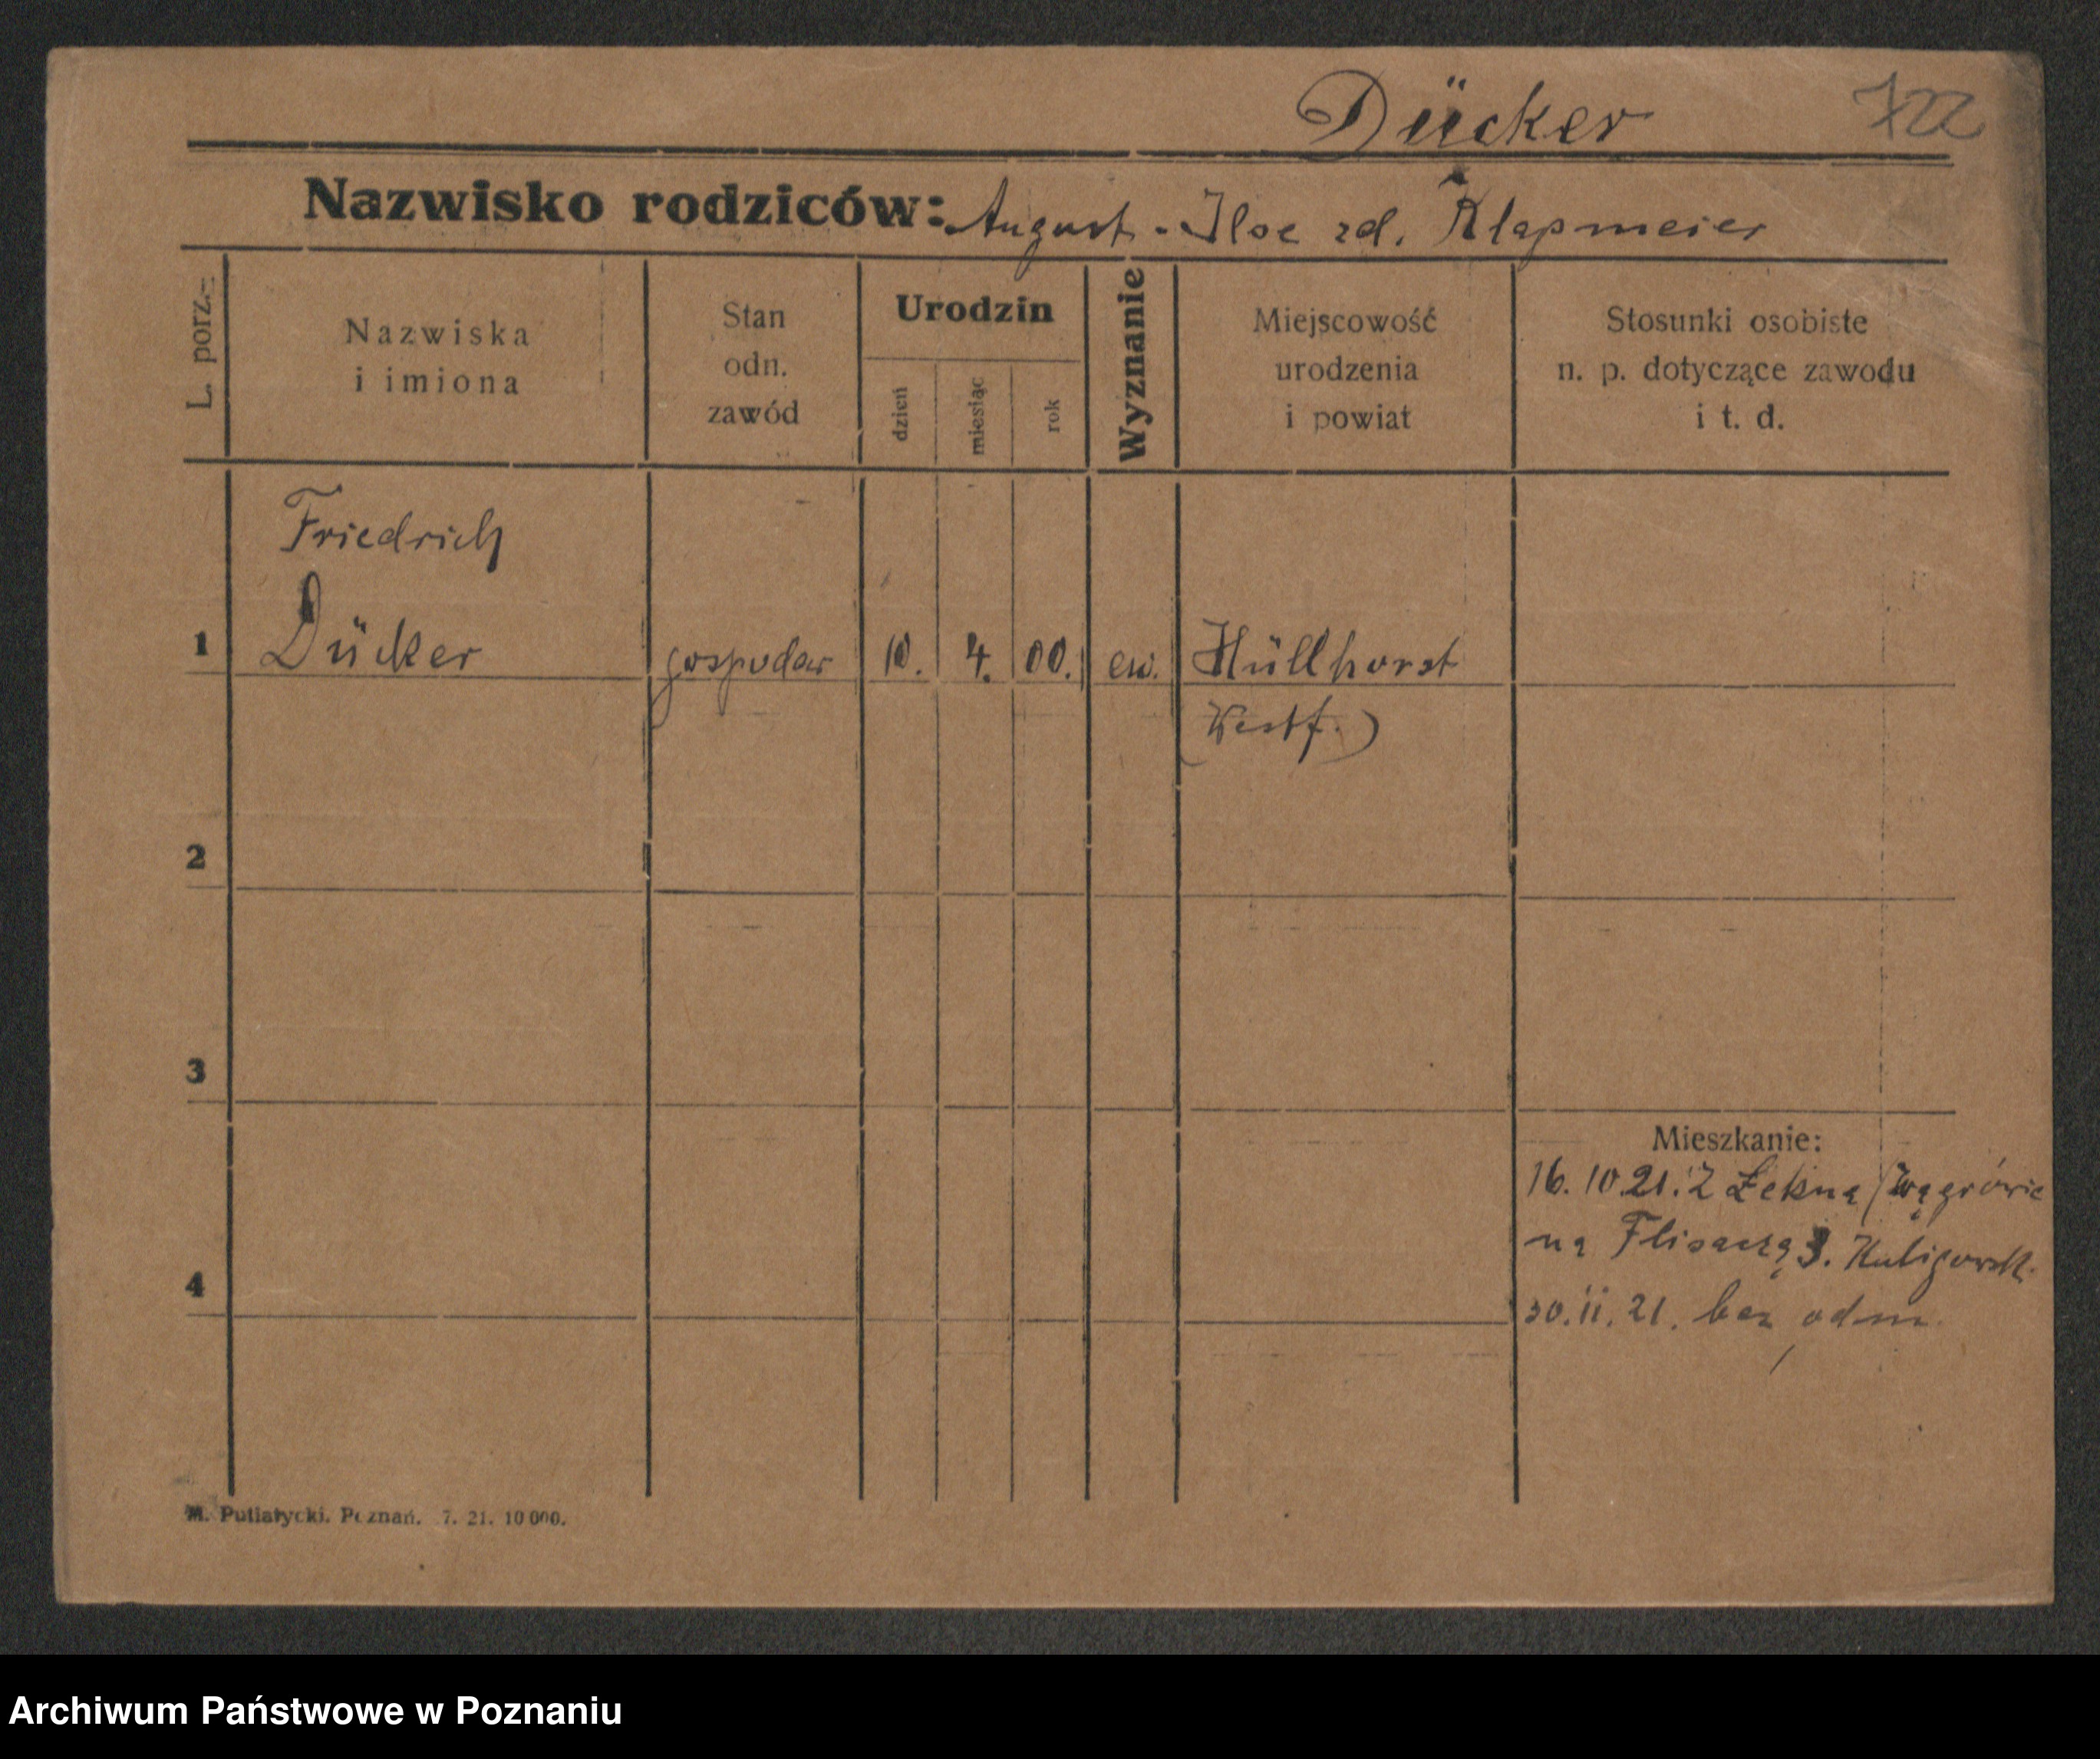 Dücker 722
Nazwisko rodziców: August - Ilse zd. Klapmeier
L. porz.
Nazwiska
i imiona
Stan
odn.
zawód
Urodzin
dzień
miesiąc
rok
Wyznanie
Miejscowość
urodzenia
i powiat
Stosunki osobiste
n. p. dotyczące zawodu
i t. d.
Friedrich
1 Dücker gospodar 10. 4. 00. ew. Hüllhorst
(Westf.)
2
3
Mieszkanie:
16. 10. 21. z Łekna (Wągrówic
na Flisaczą 3.
4
30. 11. 21. bez odm
M. Putiatycki. Poznań. 7. 21. 10 000.
Archiwum Państwowe w Poznaniu